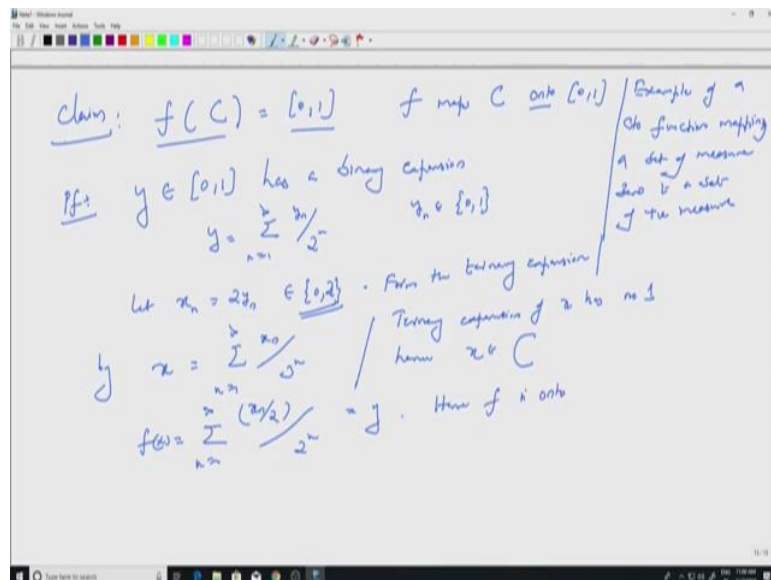 Note1 - Windows Journal
File Edit View Insert Actions Tools Help
Claim: f(C) = [0,1] f maps C onto [0,1]
Example of a
cts function mapping
a set of measure
zero to a set
of +ve measure
Pf: y ∈ [0,1] has a binary expansion
y = ∑_{n=1}^∞ y_n/2^n y_n ∈ {0,1}
Let x_n = 2y_n ∈ {0,2}. Form the ternary expansion
by x = ∑_{n=1}^∞ x_n/3^n
Ternary expansion of x has no 1
hence x ∈ C
f(x) = ∑_{n=1}^∞ (x_n/2)/2^n = y. Hence f is onto
Type here to search
ENG 11:00 AM